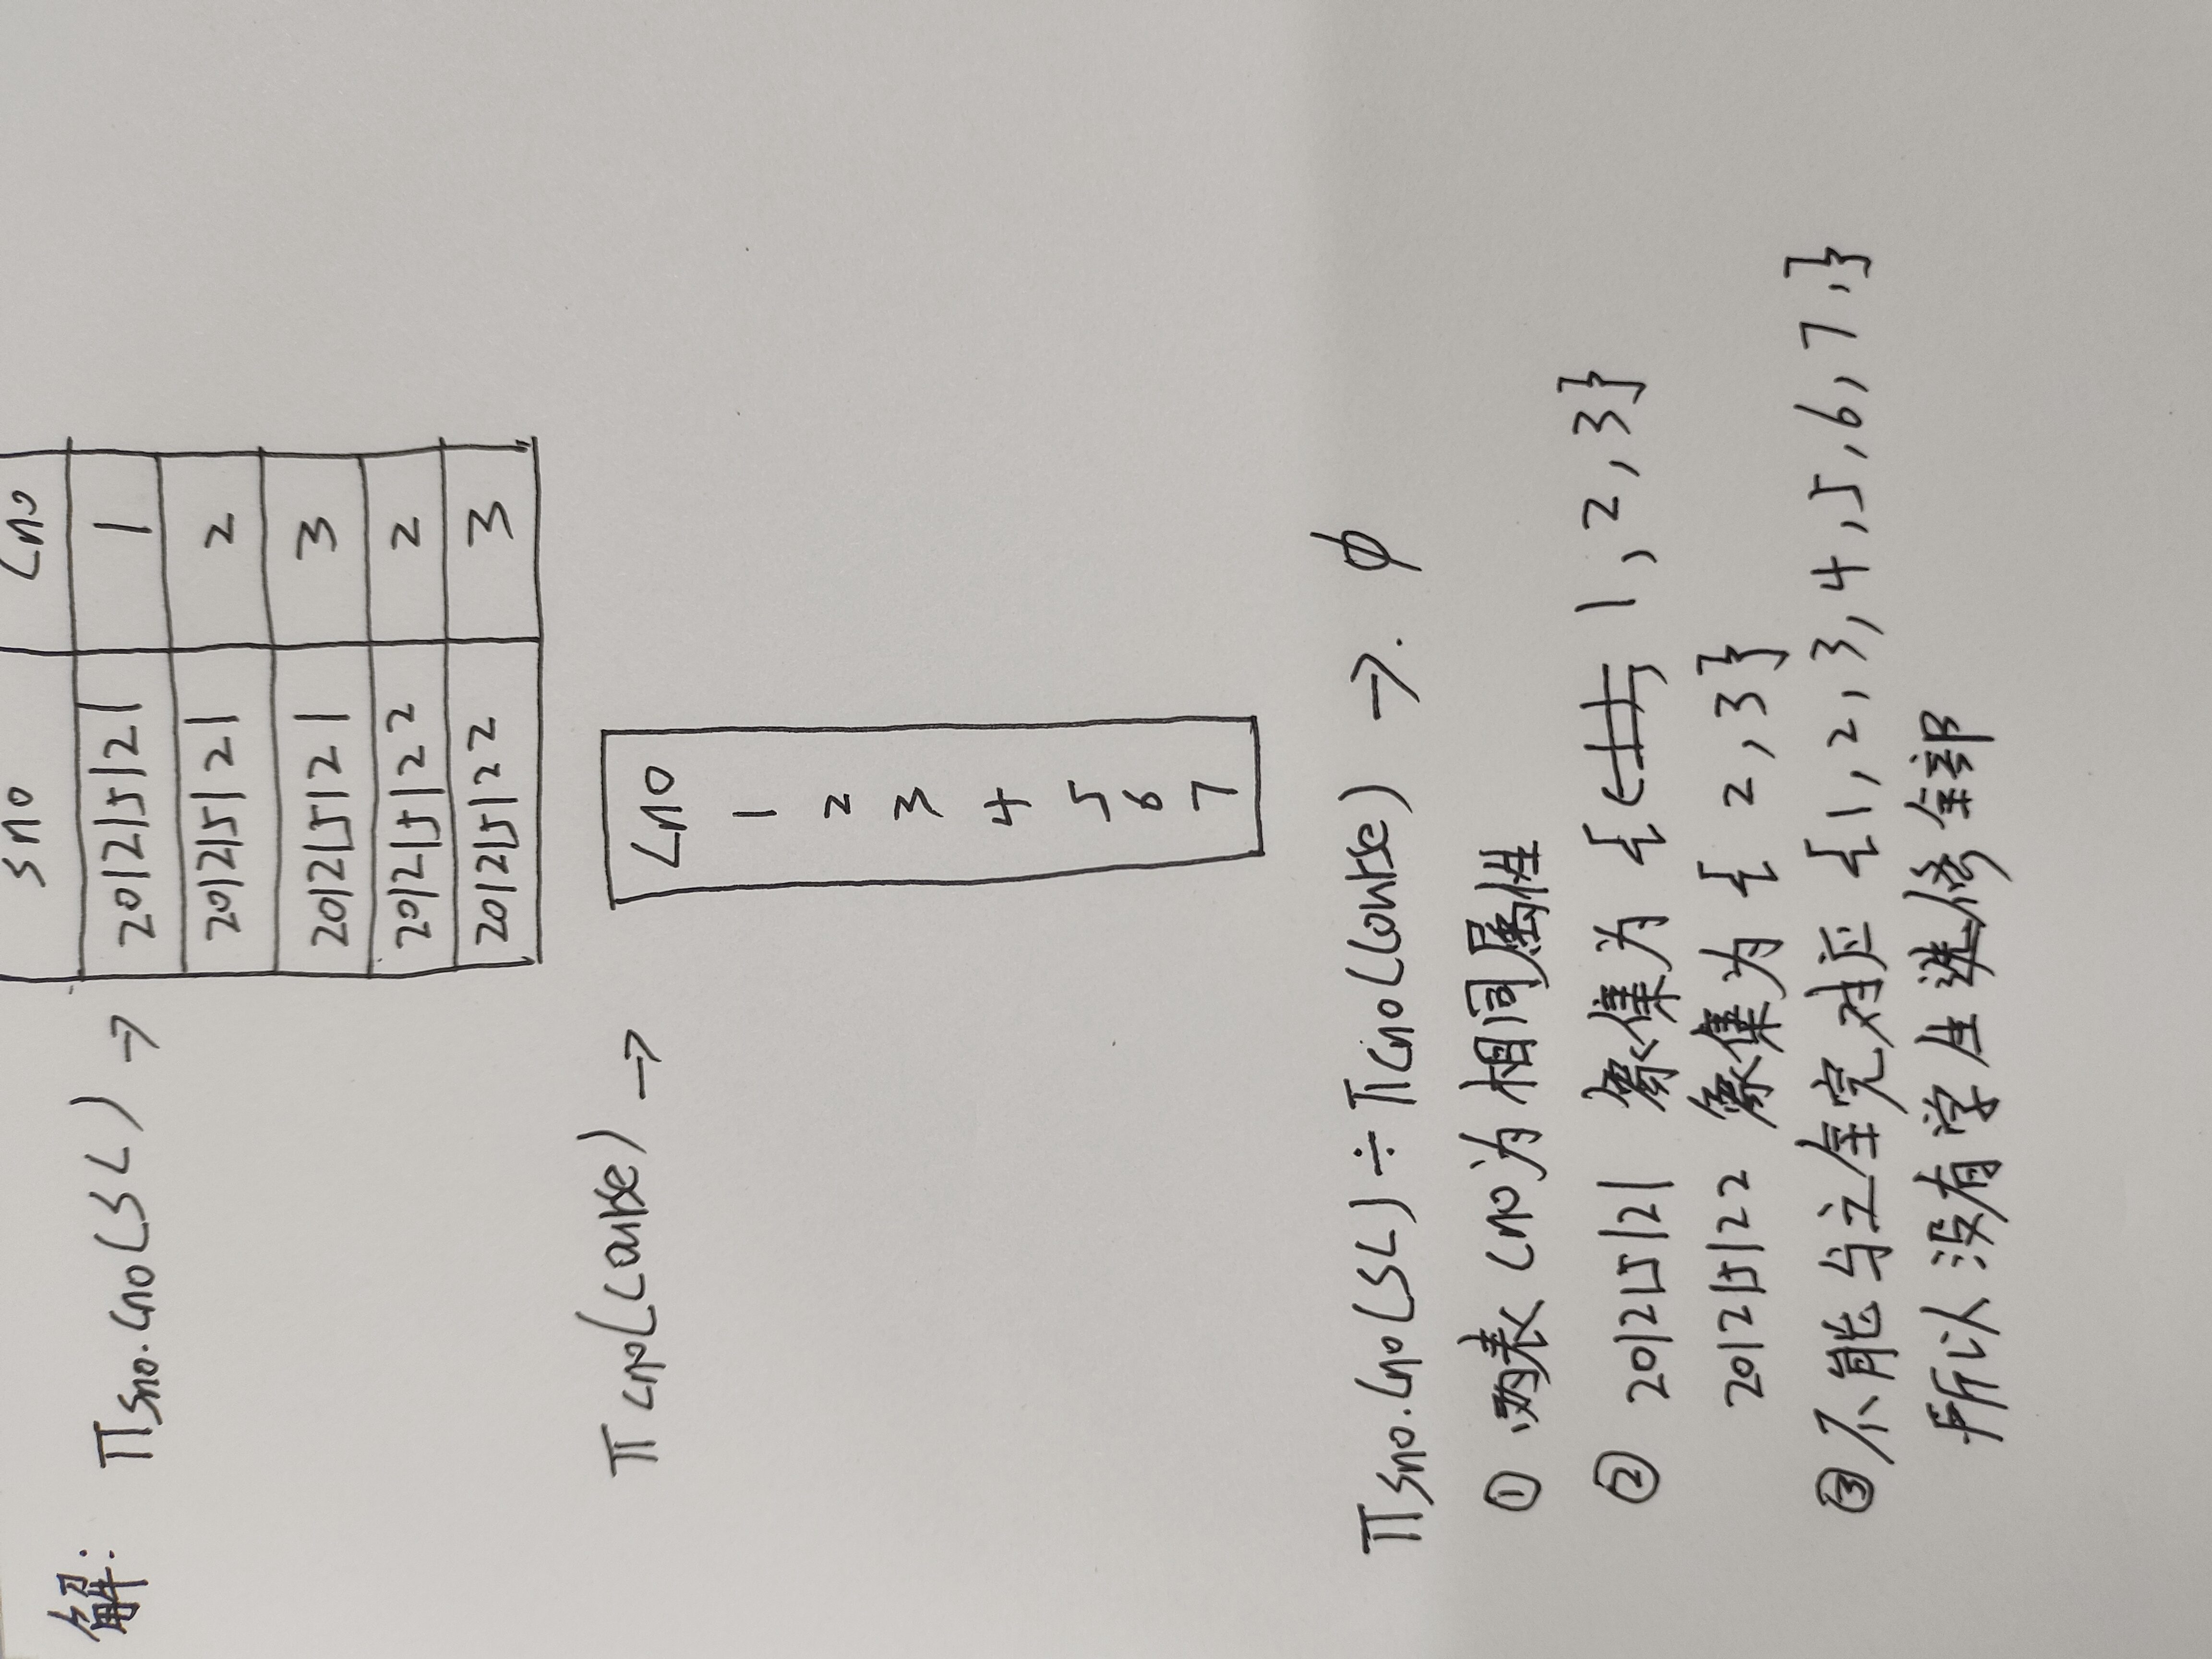 解: Πsno.cno(SC) →
sno cno
201215121 1
201215121 2
201215121 3
201215122 2
201215122 3
Πcno(Course) →
Cno
1
2
3
4
5
6
7
Πsno.cno(SC) ÷ Πcno(Course) →. φ
① 两表Cno为相同属性
② 201215121 象集为 { 1, 2, 3}
201215122 象集为 { 2, 3}
③ 不能与立全完对应 {1, 2, 3, 4, 5, 6, 7,}
所以没有学生选修全部